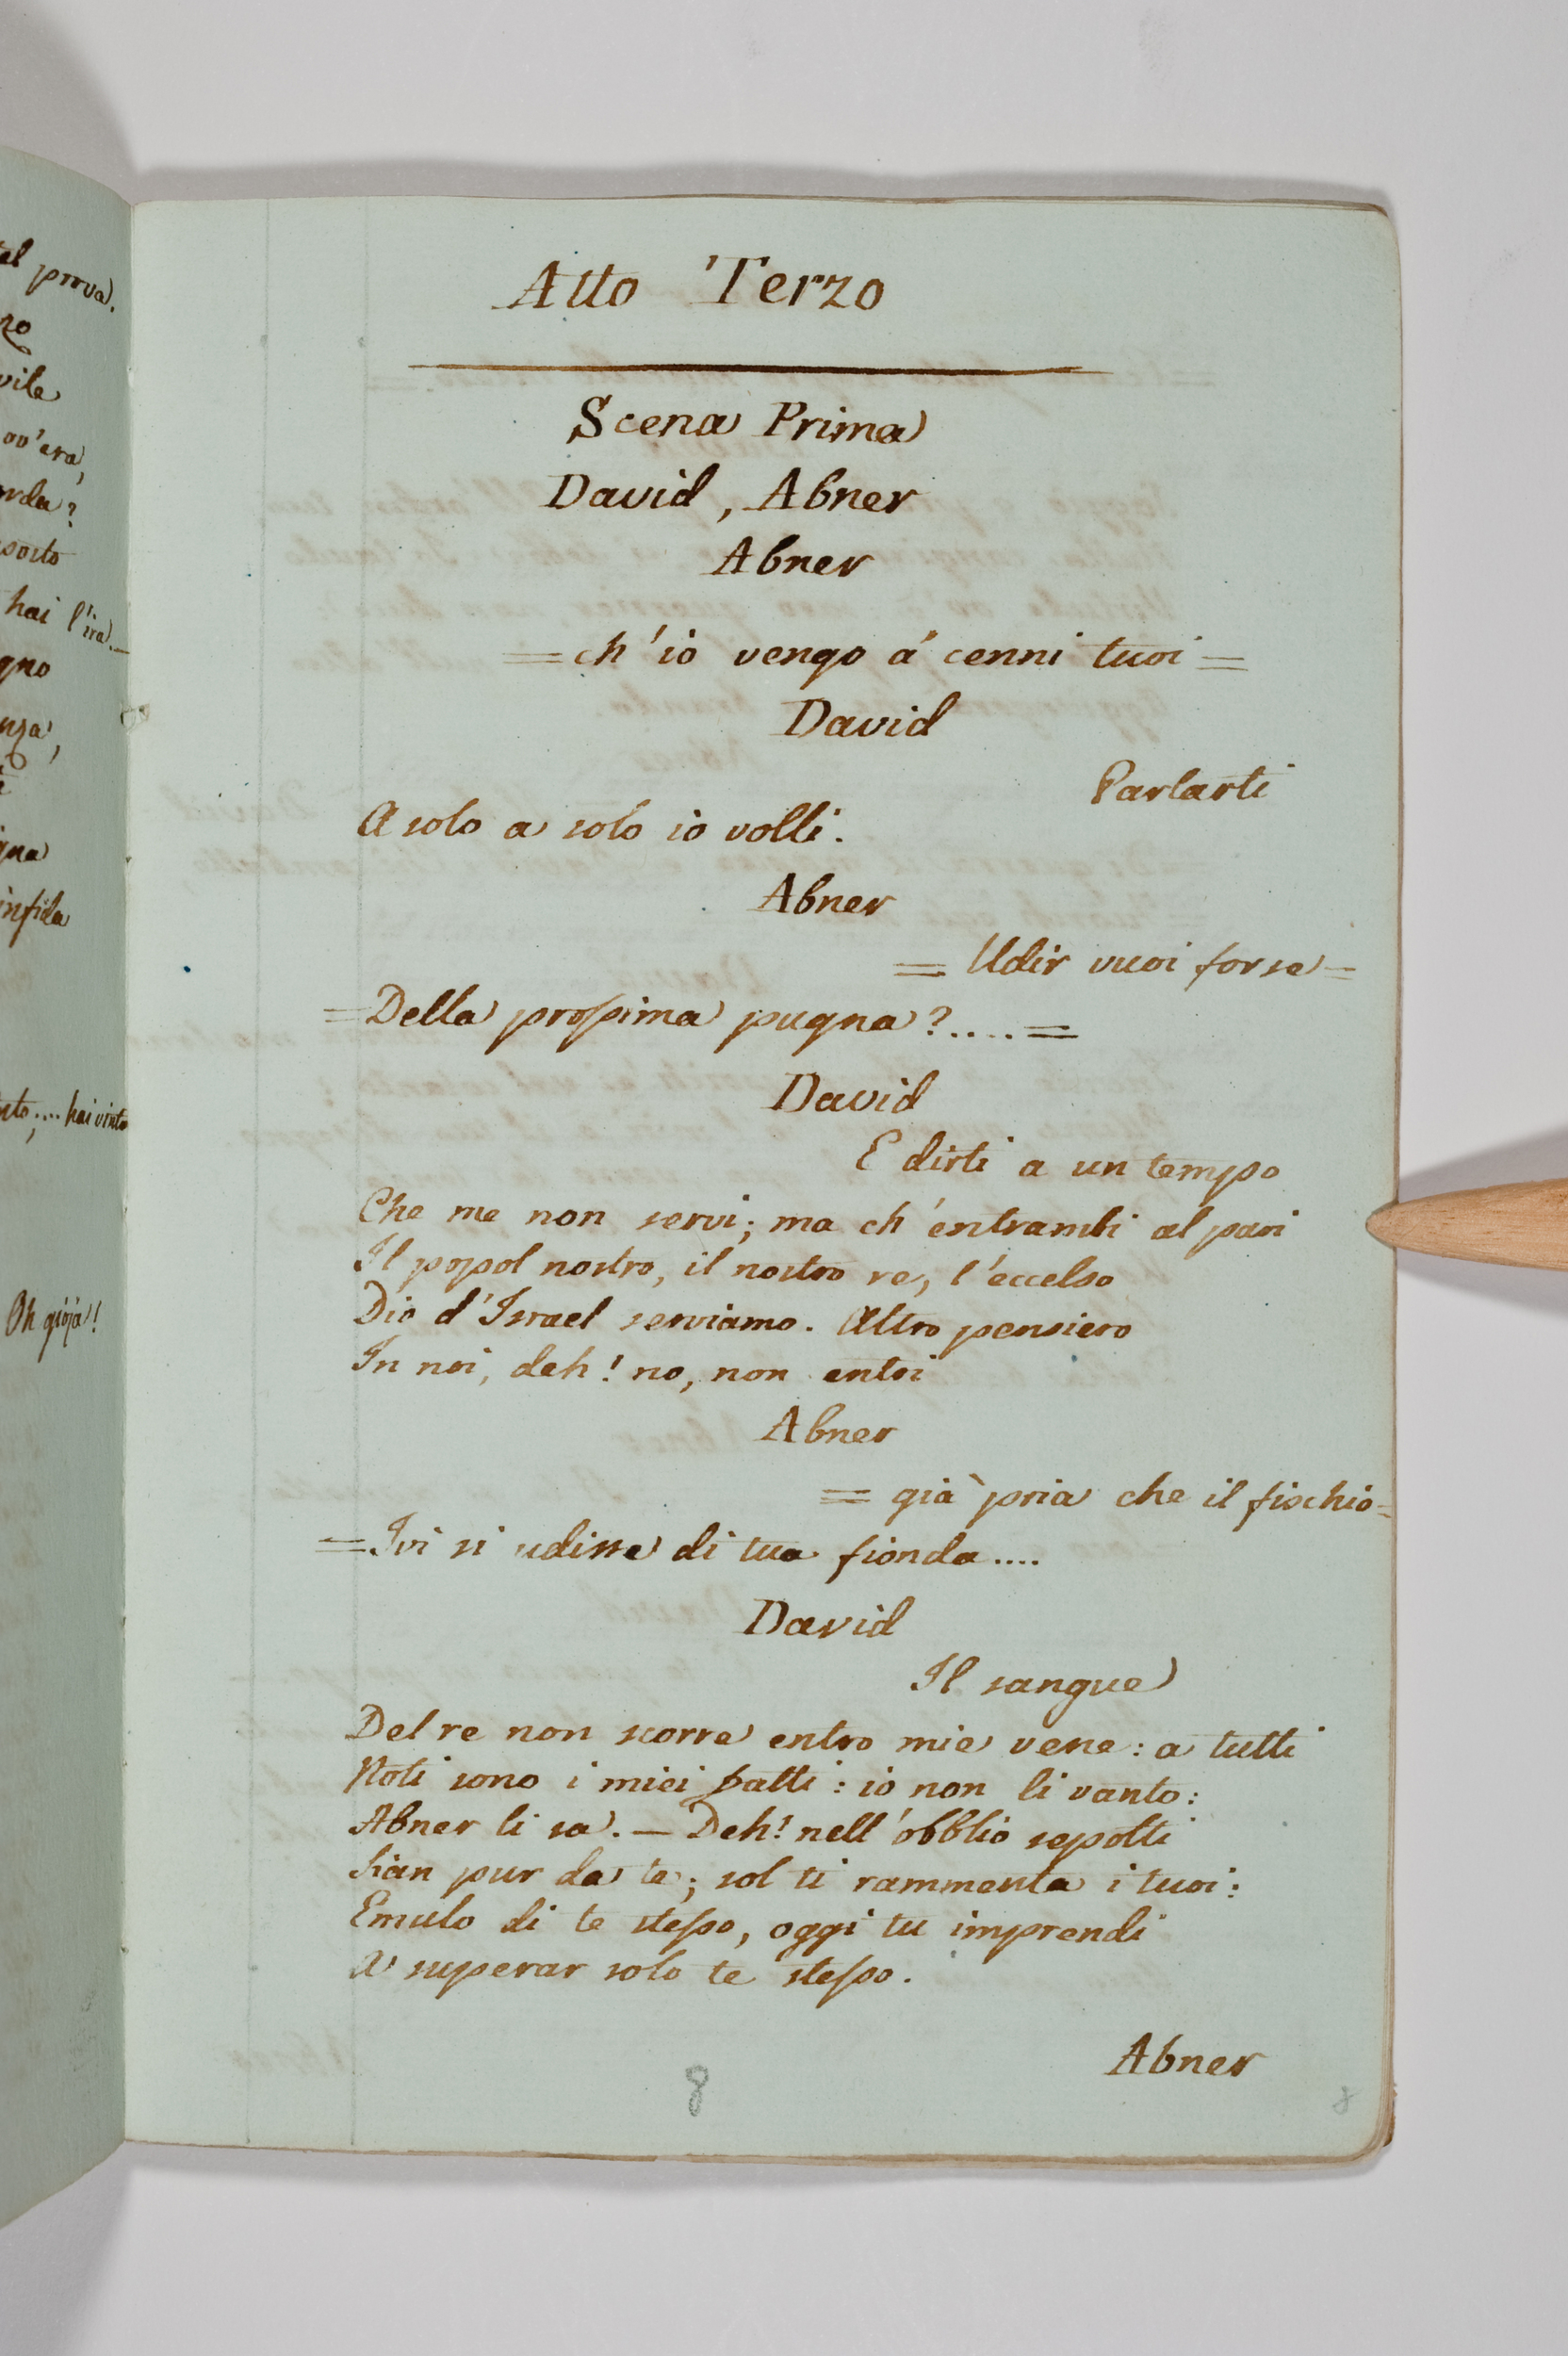 al prova.
no
vile
ov'era,
orda?
sorto
hai l'ira.—
gno
nza,
gna
infida
nto;.... hai vinto
Oh gioja!
Atto Terzo
Scena Prima
David, Abner
Abner
= ch'io vengo á cenni tuoi =
David
Parlarti
A solo a solo io volli.
Abner
= Udir vuoi forse =
= Della prossima pugna?.... =
David
E dirti a un tempo
Che me non servi; ma ch'entrambi al pari
Il popol nostro, il nostro re, l'eccelso
Dio d'Israel serviamo. Altro pensiero
In noi, deh! no, non entri
Abner
= già pria che il fischio =
= Ivi si udisse di tua fionda....
David
Il sangue
Del re non scorre entro mie vene: a tutti
Noti sono i miei fatti: io non li vanto:
Abner li sa. — Deh! nell'obblio sepolti
Sian pur da te; sol ti rammenta i tuoi:
Emulo di te stesso, oggi tu imprendi
A superar solo te stesso.
Abner
8
8